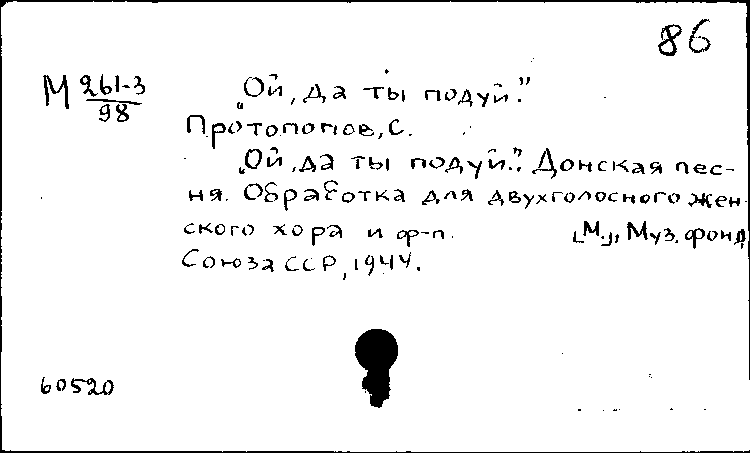 86
М 261-3
98
„Ой, да ты подуй."
Протопопов, С.
„Ой, да ты подуй.". Донская пес-
ня. Обработка для двухголосного жен-
ского хора и ф-п. [М.], Муз. фонд
Союза ССР, 1944.
60520